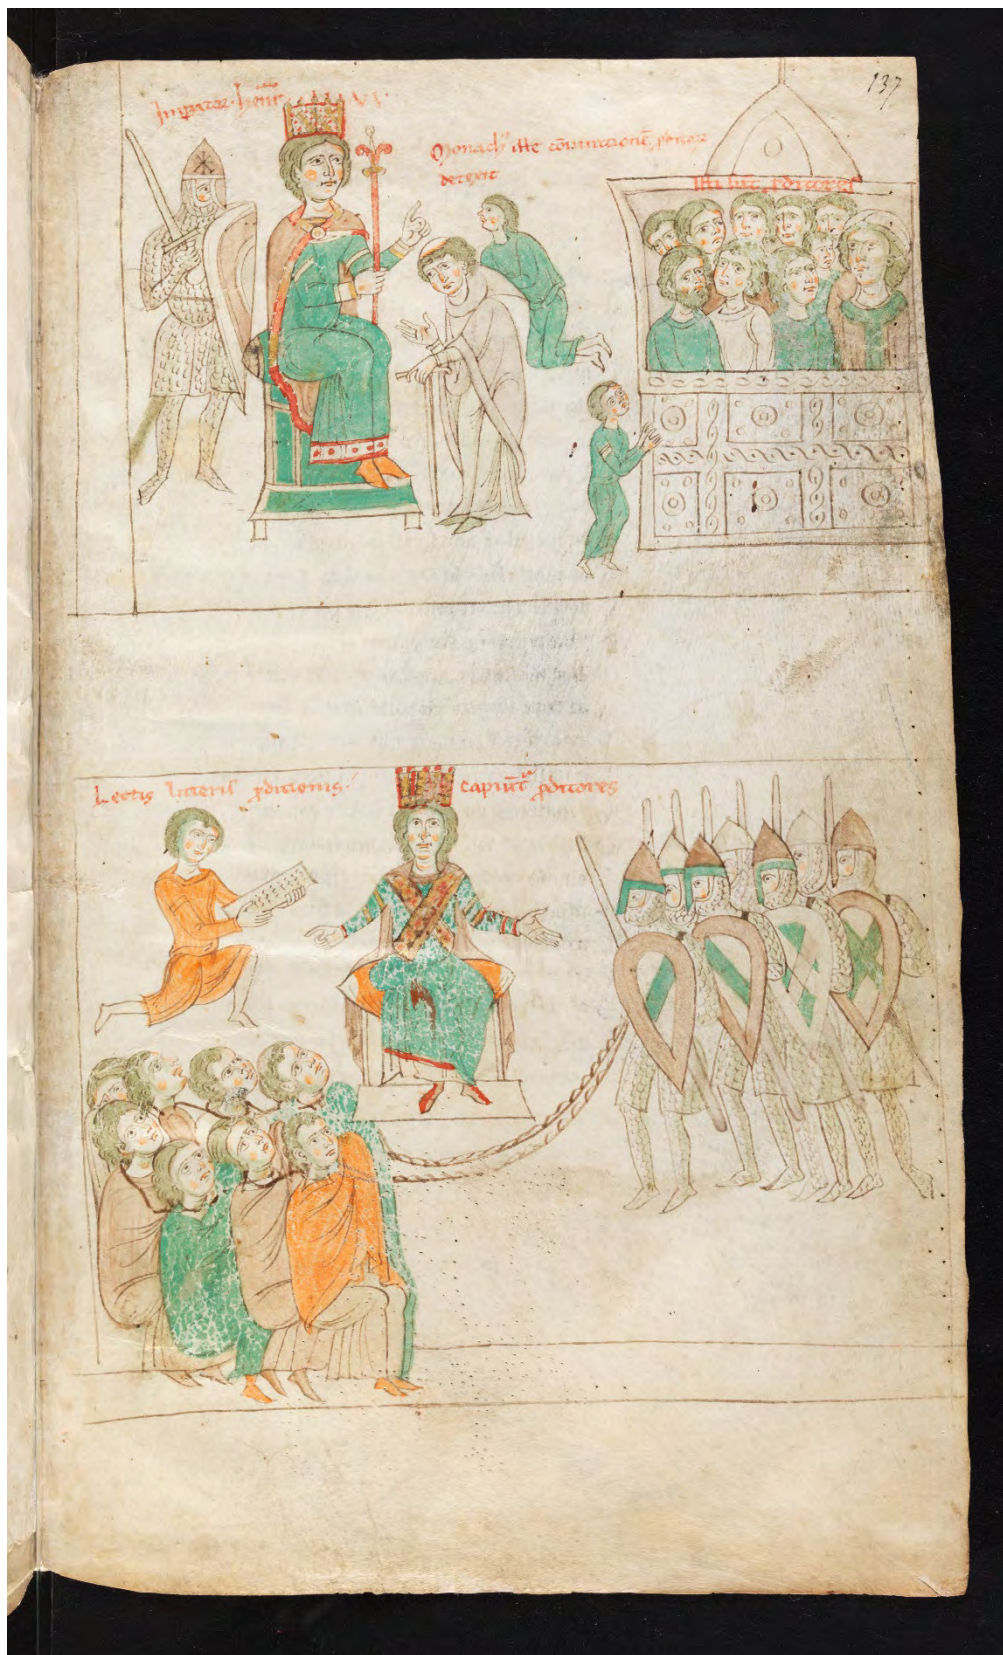 137
Imperator henric VI
Monachus iste coniurationem proditorum
detexit
Isti sunt proditores
Lectis litteris proditionis
capiuntur proditores